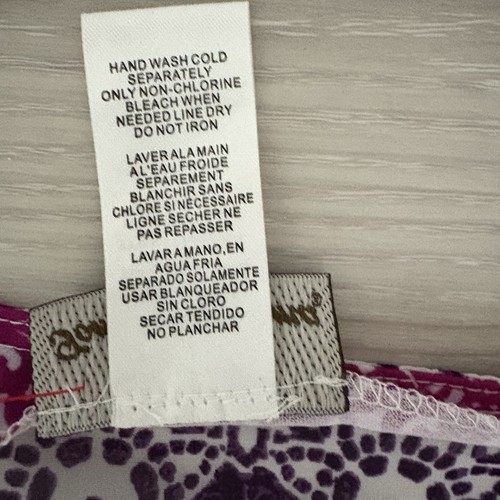 HAND WASH COLD
SEPARATELY
ONLY NON-CHLORINE
BLEACH WHEN
NEEDED LINE DRY
DO NOT IRON
LAVER ALA MAIN
A L'EAU FROIDE
SEPAREMENT
BLANCHIR SANS
CHLORE SI NÉCESSAIRE
LIGNE SECHER NE
PAS REPASSER
LAVAR A MANO, EN
AGUA FRIA
SEPARADO SOLAMENTE
USAR BLANQUEADOR
SIN CLORO
SECAR TENDIDO
NO PLANCHAR